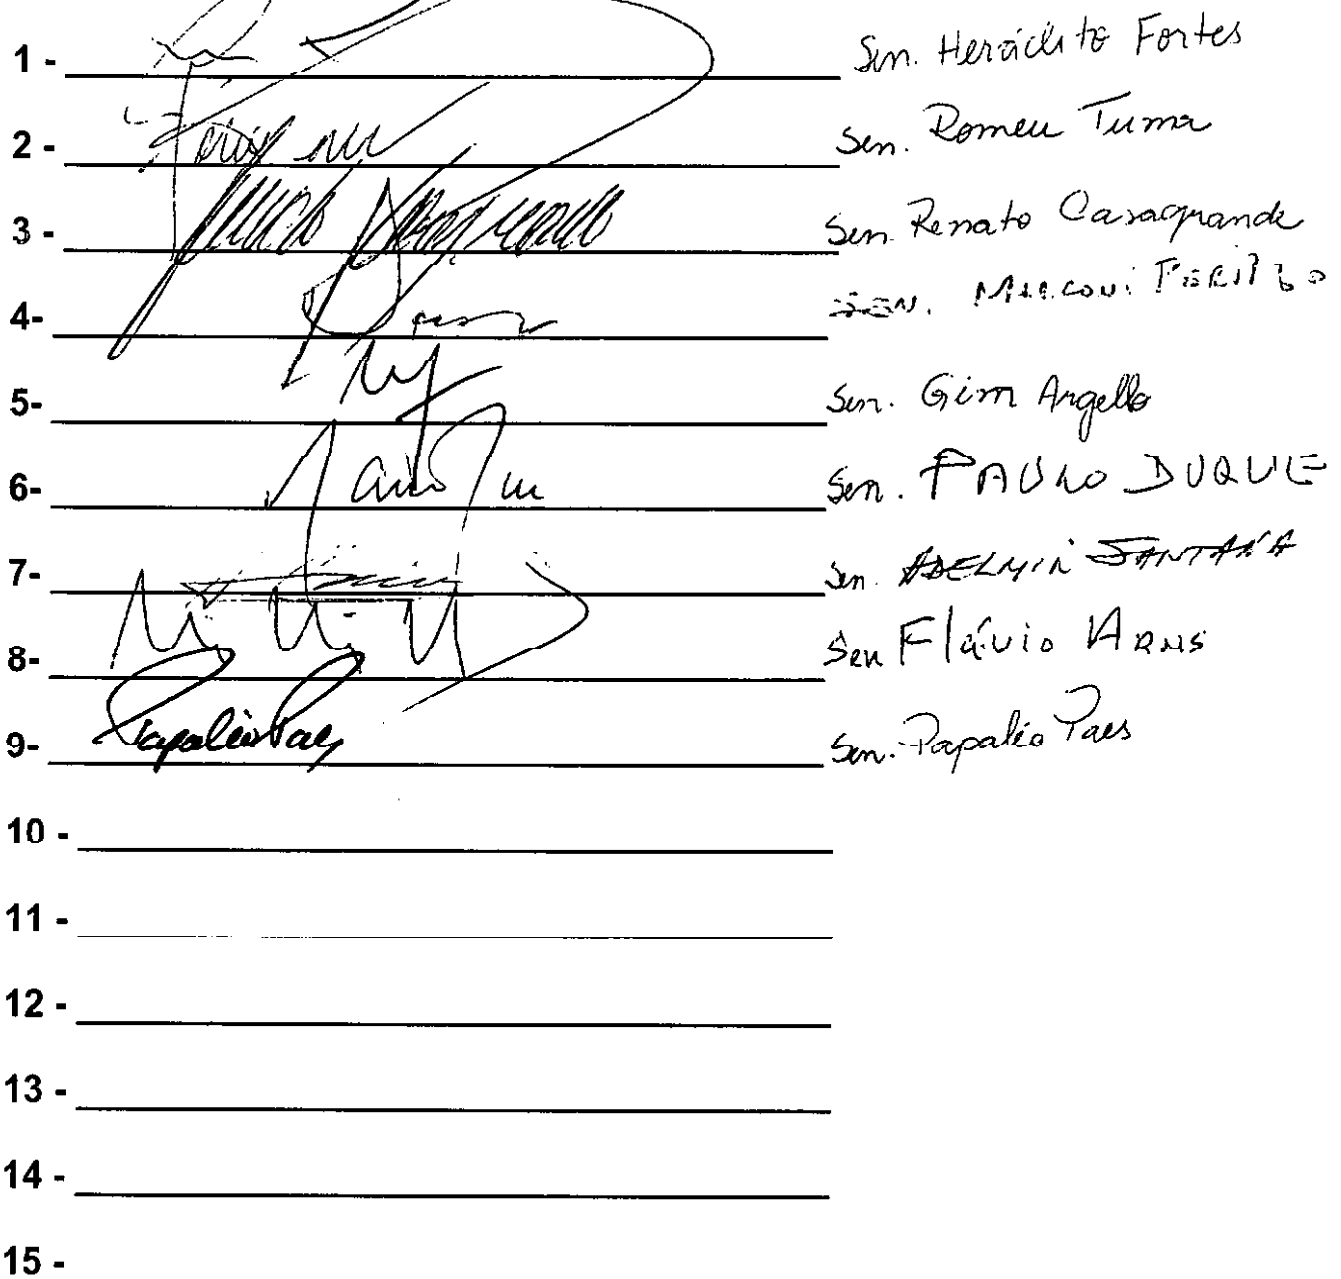 1 - Sen. Heráclito Fortes
2 - Sen. Romeu Tuma
3 - Sen. Renato Casagrande
4- SEN. MARCONI PERILLO
5- Sen. Gim Argello
6- Sen. PAULO DUQUE
7- Sen. ADELMIR SANTANA
8- Sen Flávio ARNS
9- Papaléo Paes Sen. Papaléo Paes
10 -
11 -
12 -
13 -
14 -
15 -